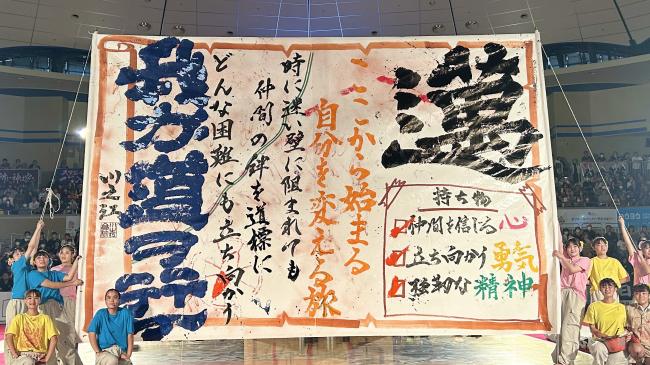 邁
持ち物
仲間を信じる心
立ち向かう勇気
強靭な精神
ここから始まる
自分を変える旅
時に迷い壁に阻まれても
仲間の絆を道標に
どんな困難にも立ち向かう
我が道ヲ
川之江